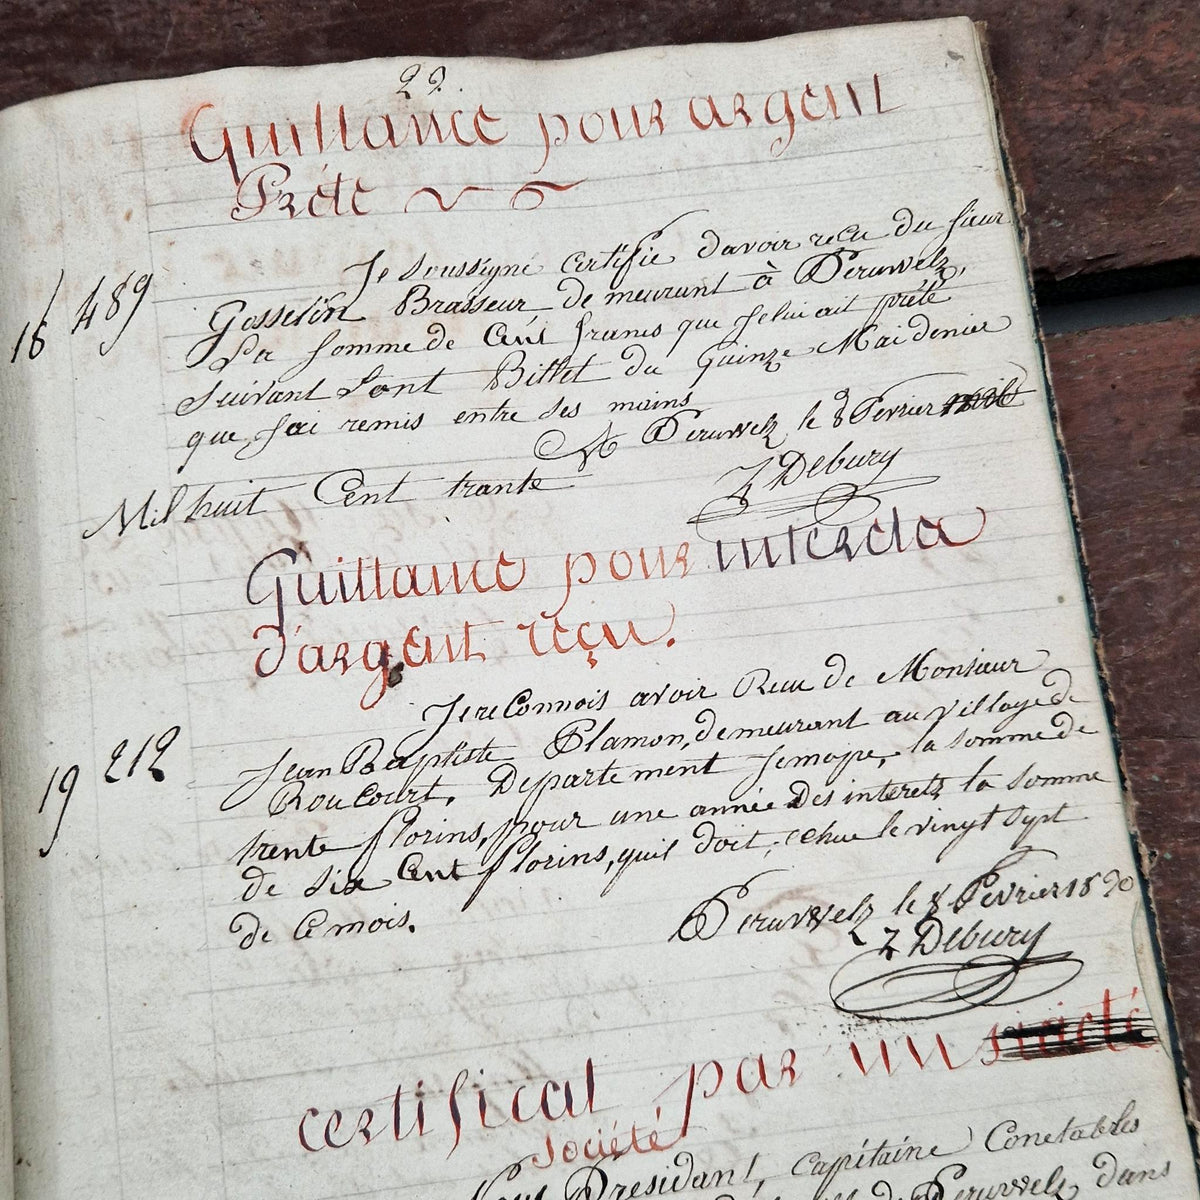 29.
Quittance pour argent
Prété
18 489
Je soussigné certifie davoir reçu du sieur
Gosselin Brasseur, demeurant à Peruwelz,
La somme de Cent francs que je lui ait prété
suivant sont Billet du quinze Mai denier
que j'ai remis entre ses mains
A Peruwelz le 8 Fevrier
Mil huit Cent trante
Z Debury
Quittance pour interela
d'argent reçu.
19 212
Je reConnois avoir Recu de Monsieur
Jean Baptiste Plamon, demeurant au village de
RouCourt, Departement Jemape, la somme de
trente florins, pour une année des interetz la somme
de six Cent florins, quil doit, echue le vingt sept
de Ce mois.
Peruwelz le 8 Fevrier 1830
Z Debury
certifical par un
société
Nous Presidant, Capitaine Conetables
de Peruwelz dans